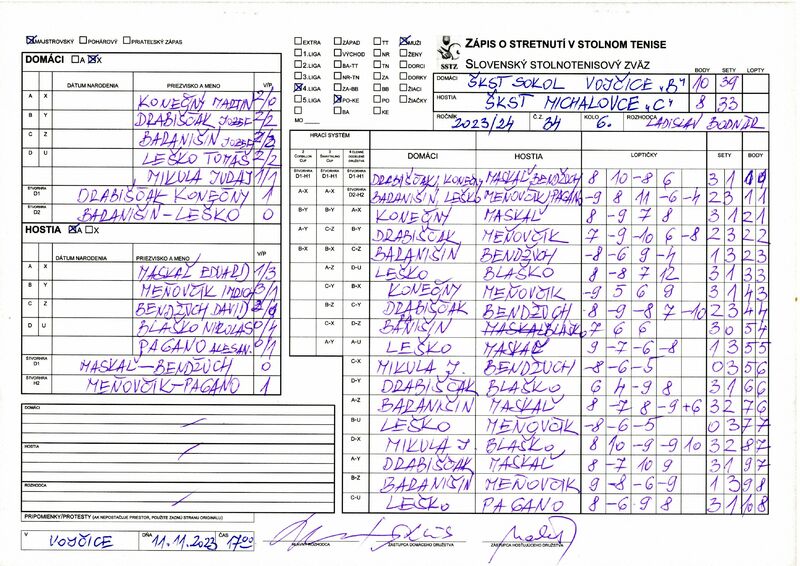 MAJSTROVSKÝ POHÁROVÝ PRIATEĽSKÝ ZÁPAS
DOMÁCI A X
DÁTUM NARODENIA PRIEZVISKO A MENO V/P
A X KONEČNÝ MARTIN 2/0
B Y DRABIŠČAK JOZEF 2/2
C Z BARANIŠIN JOZEF 2/3
D U LEŠKO TOMÁŠ 2/2
MIKULA JURAJ 1/1
ŠTVORHRA D1 DRABIŠČAK KONEČNÝ 1
ŠTVORHRA D2 BARANIŠIN-LEŠKO 0
HOSTIA A X
DÁTUM NARODENIA PRIEZVISKO A MENO V/P
A X MASKAĽ EDUARD 1/3
B Y MEŇOVČIK IMRICH 3/1
C Z BENDŽUCH DAVID
D U BLAŠKO NIKOLAS 0/4
PAGANO ALESAN. 0/1
ŠTVORHRA D1 MASKAĽ-BENDŽUCH 0
ŠTVORHRA H2 MEŇOVČIK-PAGANO 1
DOMÁCI
HOSTIA
ROZHODCA
PRIPOMIENKY/PROTESTY (AK NEPOSTAČUJE PRIESTOR, POUŽITE ZADNÚ STRANU ORIGINÁLU)
V VOJČICE DŇA 11.11.2023 ČAS 17:00
HLAVNÝ ROZHODCA ZÁSTUPCA DOMÁCEHO DRUŽSTVA ZÁSTUPCA HOSŤUJÚCEHO DRUŽSTVA
EXTRA ZÁPAD TT MUŽI
1.LIGA VÝCHOD NR ŽENY
2.LIGA BA-TT TN DORCI
3.LIGA NR-TN ZA DORKY
4.LIGA ZA-BB BB ŽIACI
5.LIGA PO-KE PO ŽIAČKY
MO BA KE
SSTZ
ZÁPIS O STRETNUTÍ V STOLNOM TENISE
SLOVENSKÝ STOLNOTENISOVÝ ZVÄZ
BODY SETY LOPTY
DOMÁCI ŠKST SOKOL VOJČICE "B" 10 39
HOSTIA ŠKST MICHALOVCE "C" 8 33
ROČNÍK 2023/24 Č.Z. 84 KOLO 6. ROZHODCA LADISLAV BODNÁR
HRACÍ SYSTÉM
DOMÁCI HOSTIA LOPTIČKY SETY BODY
DRABIŠČAK, KONEČNÝ MASKAĽ BENDŽUCH 8 10 -8 6 3 1 1 0
BARANIŠIN, LEŠKO MEŇOVČIK PAGANO -9 8 11 -6 -4 2 3 1 1
A-X KONEČNÝ MASKAĽ 8 -9 7 8 3 1 2 1
B-Y DRABIŠČAK MEŇOVČIK 7 -9 -10 6 -8 2 3 2 2
C-Z BARANIŠIN BENDŽUCH -8 -6 9 -4 1 3 2 3
D-U LEŠKO BLAŠKO 8 -8 7 12 3 1 3 3
B-X KONEČNÝ MEŇOVČIK -9 5 6 9 3 1 4 3
C-Y DRABIŠČAK BENDŽUCH 8 -9 -8 7 -10 2 3 4 4
D-Z BANIŠIN BLAŠKO 7 6 6 3 0 5 4
A-U LEŠKO MASKAĽ 9 -7 -6 -8 1 3 5 5
C-X MIKULA J. BENDŽUCH -8 -6 -5 0 3 5 6
D-Y DRABIŠČAK BLAŠKO 6 4 -9 8 3 1 6 6
A-Z BARANIŠIN MASKAĽ 8 -7 8 -9 +6 3 2 7 6
B-U LEŠKO MEŇOVČIK -8 -6 -5 0 3 7 7
D-X MIKULA J BLAŠKO 8 10 -9 -9 10 3 2 8 7
A-Y DRABIŠČAK MASKAĽ 8 -7 10 9 3 1 9 7
B-Z BARANIŠIN MEŇOVČIK 9 -8 -6 -9 1 3 9 8
C-U LEŠKO PAGANO 8 -6 9 8 3 1 10 8